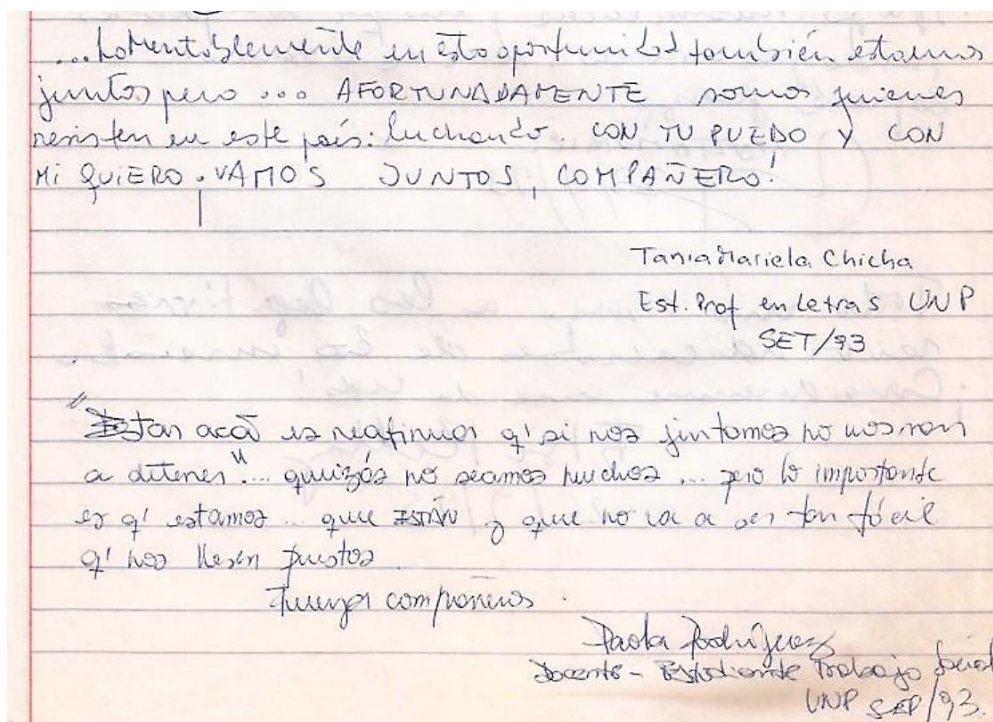 ...lamentablemente en esta oportunidad también estamos
juntos pero ... AFORTUNADAMENTE somos quienes
resisten en este país: luchando. CON TU PUEDO Y CON
MI QUIERO. VAMOS JUNTOS, COMPAÑERO!
Tania Mariela Chicha
Est. Prof en Letras UNP
SET/93
"Estar acá es reafirmar q' si nos juntamos no nos van
a detener"... quizás no seamos muchos ... pero lo importante
es q' estamos ... que ESTÁN y que no va a ser tan fácil
q' nos
Fuerza compañeros.
Paola Rodríguez
Docente - Estudiante Trabajo Social
UNP SEP/93.